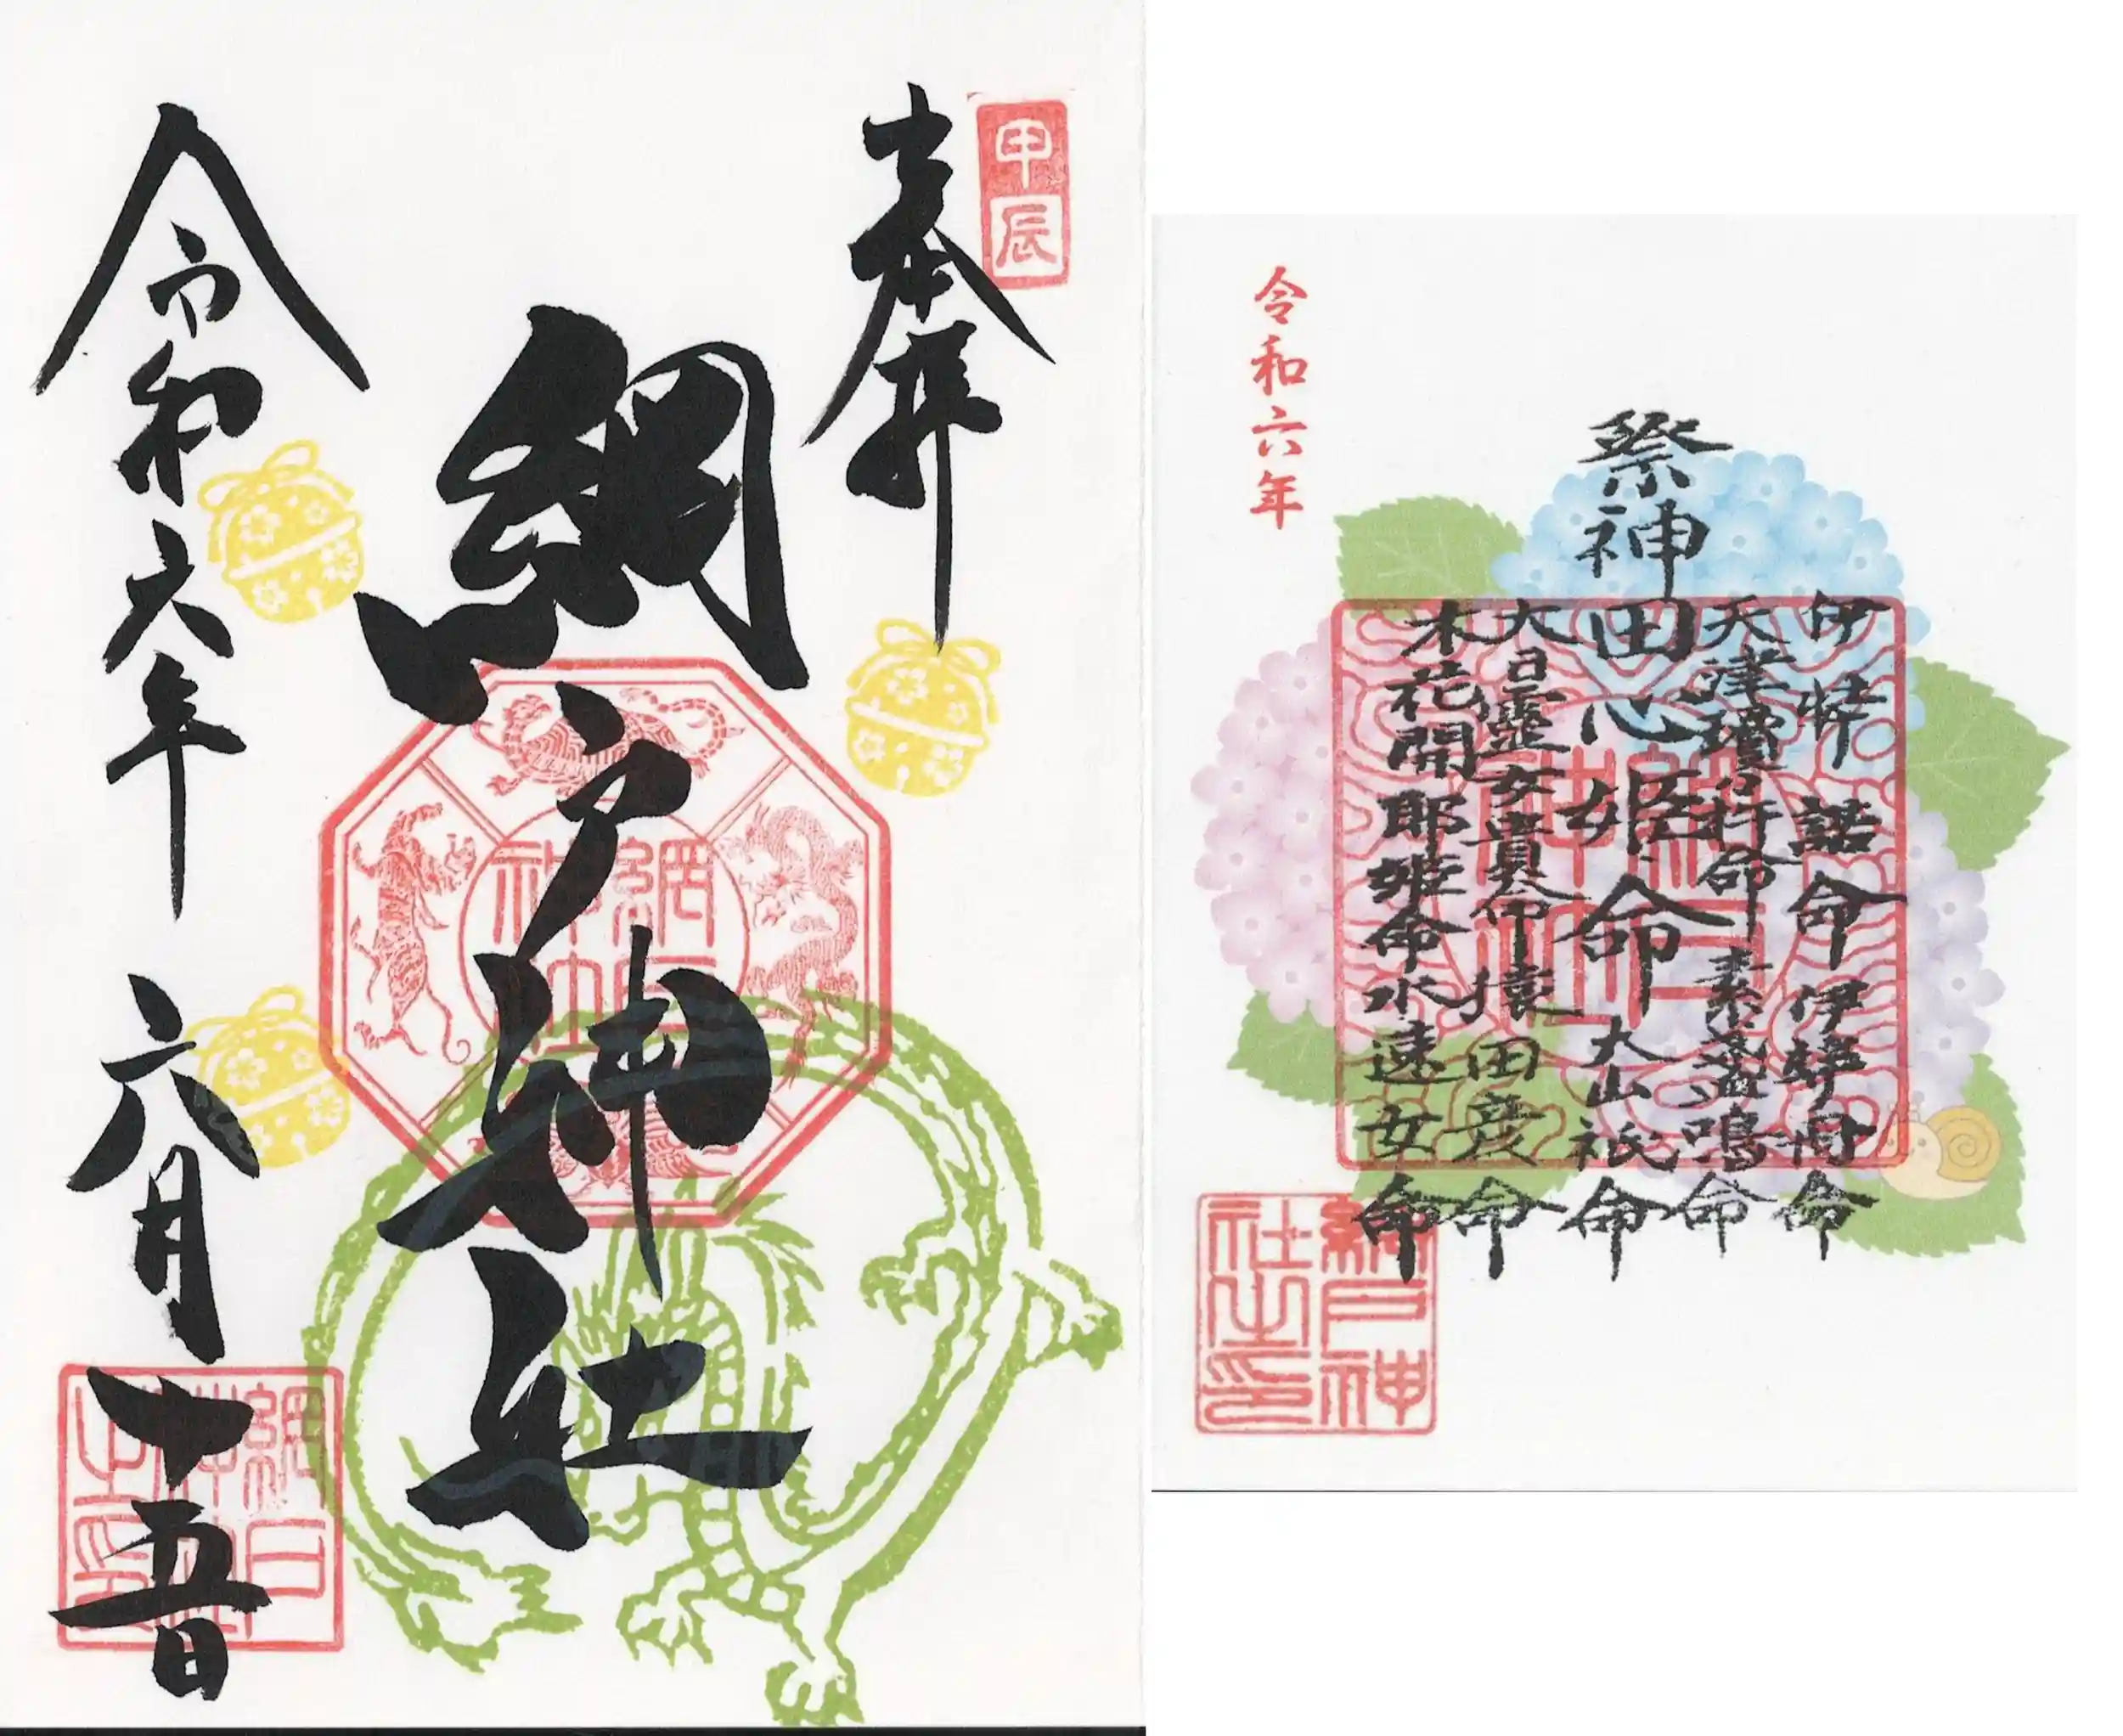 甲辰
奉拝
網戸神社
令和六年六月十五日
網戸神社
網戸神社之印
令和六年
祭神
伊弉諾命 伊弉冉命
天津瓊々杵命 素戔嗚命
田心姫命 大山祇命
大日靈女貴命 猿田彦命
木花開耶姫命 水速女命
網戸神社
網戸神社之印